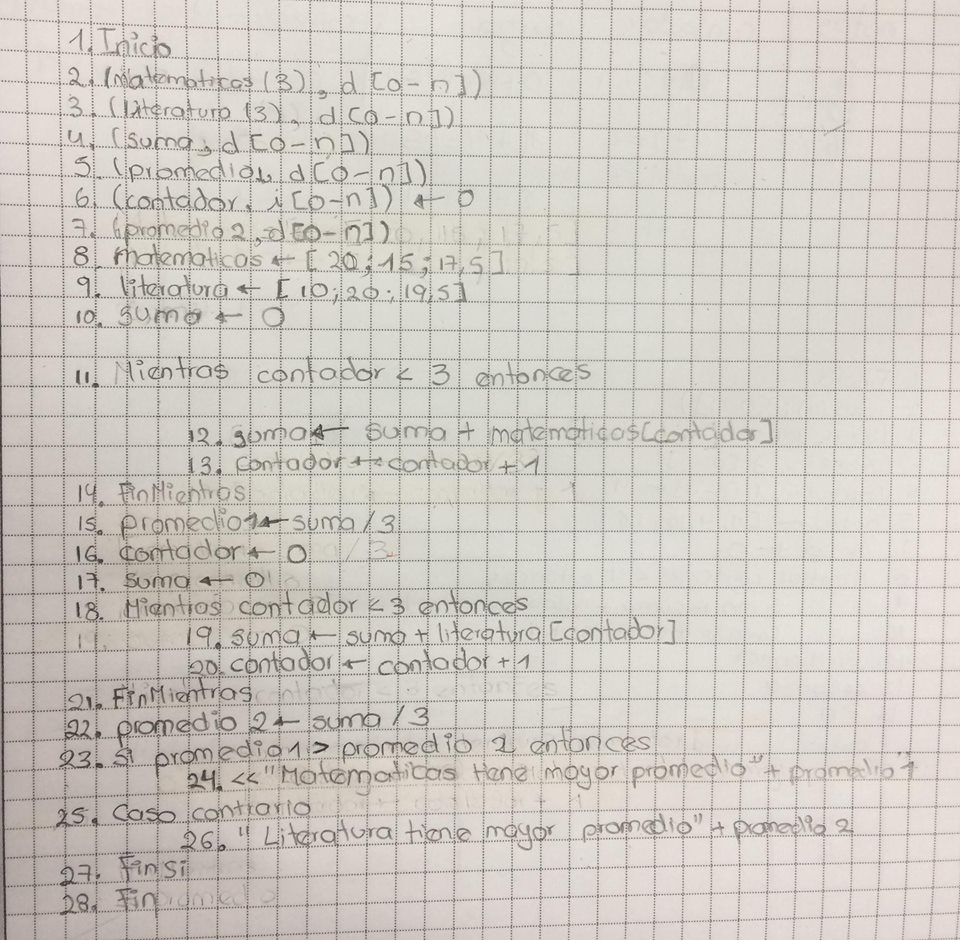 1. Inicio
2. (Matematicas (3), d [0-n])
3. (literatura (3), d [0-n])
4. (suma, d [0-n])
5. (promedio1, d [0-n])
6. (contador, i [0-n]) ← 0
7. (promedio 2, d [0-n])
8. matematicas ← [ 20 ; 15 ; 17,5 ]
9. literatura ← [ 10 ; 20 ; 19,5 ]
10. suma ← 0
11. Mientras contador < 3 entonces
12. suma ← suma + matematicas [contador]
13. contador ← contador + 1
14. FinMientras
15. promedio1 ← suma / 3
16. contador ← 0
17. suma ← 0
18. Mientras contador < 3 entonces
19. suma ← suma + literatura [contador]
20. contador ← contador + 1
21. FinMientras
22. promedio 2 ← suma / 3
23. si promedio1 > promedio 2 entonces
24. << "Matematicas tiene mayor promedio" + promedio 1
25. Caso contrario
26. " Literatura tiene mayor promedio" + promedio 2
27. FinSi
28. Fin